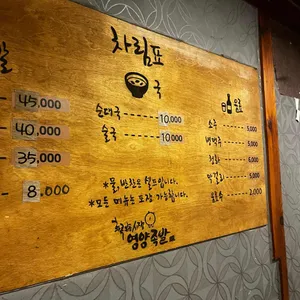 차림표
발
45,000
40,000
35,000
8.000
국
순대국 10,000
술국 10,000
음료
소주 5,000
맥주 5,000
청하 6,000
막걸리 5,000
음료수 2,000
*물, 반찬은 셀프입니다.
*모든 메뉴는 포장 가능합니다.
영양족발